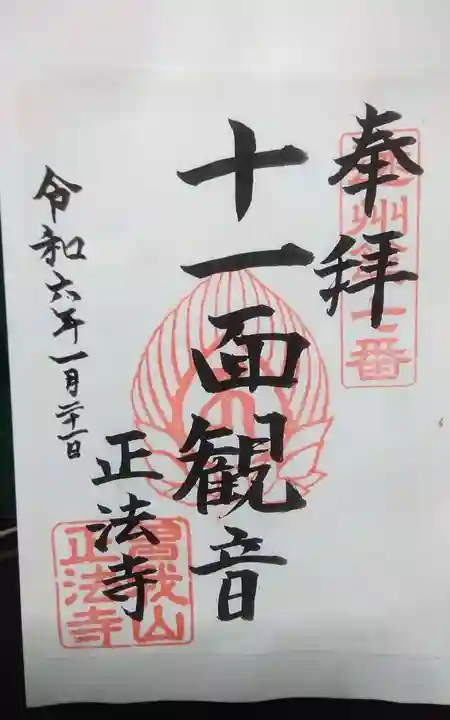 奉拝
州
番
十一面観音
正法寺
曽我山
正法寺
令和六年一月二十一日